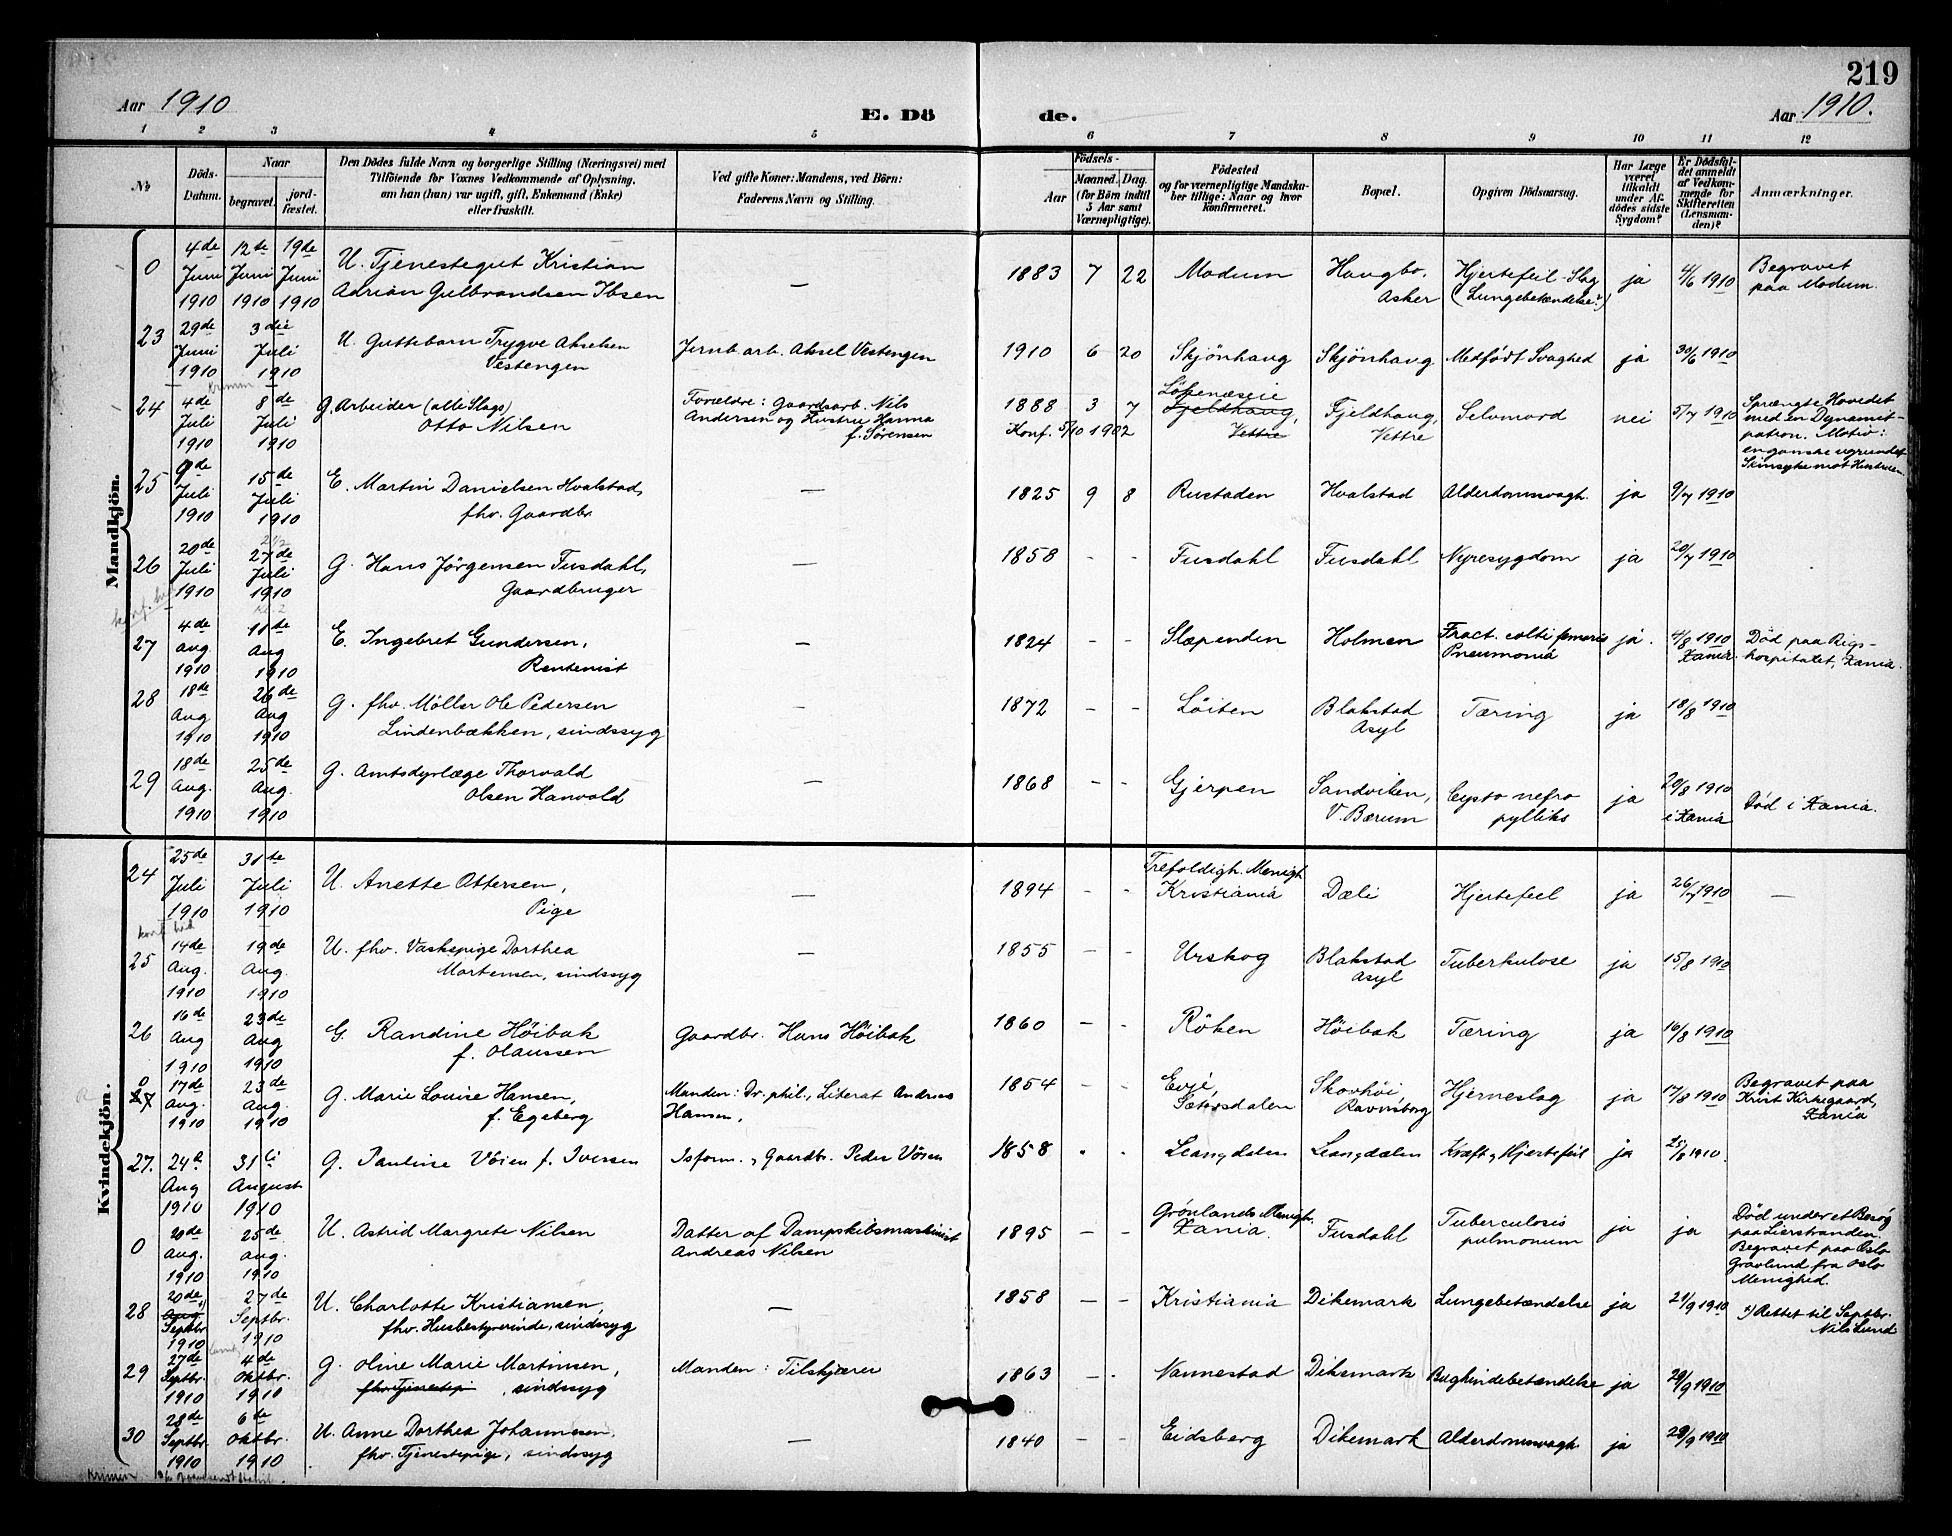 219
Aar 1910
E. Dö
de.
Aar 1910.
1 2 3 4 5 6 7 8 9 10 11 12
No
Döds-
Datum.
Naar
begravet.
jord-
fæstet.
Den Dödes fulde Navn og borgerlige Stilling (Næringsvei) med
Tilföiende for Voxnes Vedkommende af Oplysning,
om han (hun) var ugift, gift, Enkemand (Enke)
eller fraskilt.
Ved gifte Koner: Mandens, ved Börn:
Faderens Navn og Stilling.
Födsels-
Aar
Maaned. Dag.
(for Börn indtil
5 Aar samt
Værnepligtige).
Födested
og for værnepligtige Mandska-
ber tillige: Naar og hvor
konfirmeret.
Bopæl.
Opgiven Dödsaarsag.
Har Læge
været
tilkaldt
under Af-
dödes sidste
Sygdom?
Er Dödsfal-
det anmeldt
af Vedkom-
mende for
Skifteretten
(Lensman-
den)?
Anmærkninger.
Mandkjön.
0
4de Juni 1910
12te Juni 1910
19de Juni 1910
U. Tjenestegut Kristian
Adrian Gulbrandsen Ibsen
—
1883 7 22
Modum
Haugbo,
Asker
Hjertefeil - Slag
(Lungebetændelse?)
ja
4/6 1910
Begravet
paa Modum.
23
29de Juni 1910
3die Juli 1910
U. Guttebarn Trygve Akselsen
Vestengen
Jernb. arb. Aksel Vestengen
1910 6 20
Skjönhaug
Skjönhaug
Medfödt Svaghed
ja
30/6 1910
24
4de Juli 1910
8de Juli 1910
G. Arbeider (alle Slags)
Otto Nilsen
Forældre: Gaardsarb. Nils
Andersen og Hustru Hanna
f. Sørensen
1888 3 7
Konf. 5/10 1902
Lökenæseie
Fjeldhaug,
Vettre
Fjeldhaug,
Vettre
Selvmord
nei
5/7 1910
Sprængte Hovedet
med en Dynamit-
patron. Motiv:
en ganske ugrundet
Skinsyke mot Hustruen
25
9de Juli 1910
15de Juli 1910
E. Martin Danielsen Hvalstad,
fhv. Gaardbr.
—
1825 9 8
Rustaden
Hvalstad
Alderdomssvagh.
ja
9/7 1910
26
20de Juli 1910
27de Juli 1910
G. Hans Jörgensen Fusdahl,
Gaardbruger
—
1858 - -
Fusdahl
Fusdahl
Nyresygdom
ja
20/7 1910
27
4de aug. 1910
11te Aug 1910
E. Ingebret Gundersen,
Rentenist
—
1824 - -
Slæpenden
Holmen
Fract. colli femoris
Pneumonia
ja.
4/8 1910
Xania.
Död paa Rigs-
hospitalet, Xania.
28
18de Aug 1910
26de Aug 1910
G. fhv. Möller Ole Pedersen
Lindenbækken, sindssyg
—
1872 - -
Löiten
Blakstad
Asyl
Tæring
ja
18/8 1910
29
18de Aug. 1910
25de Aug. 1910
G. Amtsdyrlæge Thorvald
Olsen Hanvold
—
1868 - -
Gjerpen
Sandviken,
V. Bærum
Cysto nefro
pyllitis
ja
20/8 1910
i Xania
Död i Xania.
Kvindekjön.
24
25de Juli 1910
31te Juli 1910
U. Anette Ottersen,
Pige
—
1894 - -
Trefoldigh. Menigh.
Kristiania
Dæli
Hjertefeil
ja
26/7 1910
—
25
14de Aug. 1910
19de Aug. 1910
U. fhv. Vaskepige Dorthea
Mortensen, sindssyg
—
1855 - -
Urskog
Blakstad
Asyl
Tuberkulose
ja
15/8 1910
26
16de Aug 1910
23de Aug 1910
G. Randine Höibak
f. Olaussen
Gaardbr. Hans Höibak
1860 - -
Röken
Höibak
Tæring
ja
16/8 1910
0
27
17de Aug. 1910
23de Aug. 1910
G. Marie Louise Hansen,
f. Egeberg
Manden: Dr. phil., Literat Andreas
Hansen,
1854 - -
Evje,
Sætersdalen
Skovhöi
Ravnsborg
Hjerneslag
ja
17/8 1910
Begravet paa
Krist Kirkegaard,
Xania
27.
24d Aug 1910
31te August 1910
G. Pauline Vöien f. Iversen
Isform., Gaardbr. Peder Vöien
1858
Leangdalen
Leangdalen
Kræft, Hjertefeil
ja
25/8 1910.
0
20de Aug. 1910
25de aug. 1910
U. Astrid Margrete Nilsen
Datter af Dampskibsmaskinist
Andreas Nilsen
1895 - -
Grönlands Menigh.
Xania.
Fusdahl
Tuberculosis
pulmonum
ja
ja
Död under et Besög
paa Lierstranden.
Begravet paa Oslo
Gravlund fra Oslo
Menighed.
28
20de Aug 1) Septbr. 1910
27de Septbr. 1910
U. Charlotte Kristiansen,
fhv. Husbestyrerinde, sindssyg
—
1858 - -
Kristiania
Dikemark
Lungebetændelse
ja
21/9 1910
1) Rettet til Septbr.
Nils Lund
29
27de Septbr. 1910
4de Oktbr. 1910
G. Oline Marie Martinsen,
fhv Tjenestepi , sindssyg
Manden: Tilskjærer
1863 - -
Nannestad
Dikemark
Bughindebetændelse
ja
28/9 1910
30
28de Septbr. 1910
6te Oktbr. 1910
U. Anne Dorthea Johannesen,
fhv. Tjenestepige, sindssyg
—
1840 - -
Eidsberg
Dikemark
Alderdomssvagh
ja
28/9 1910